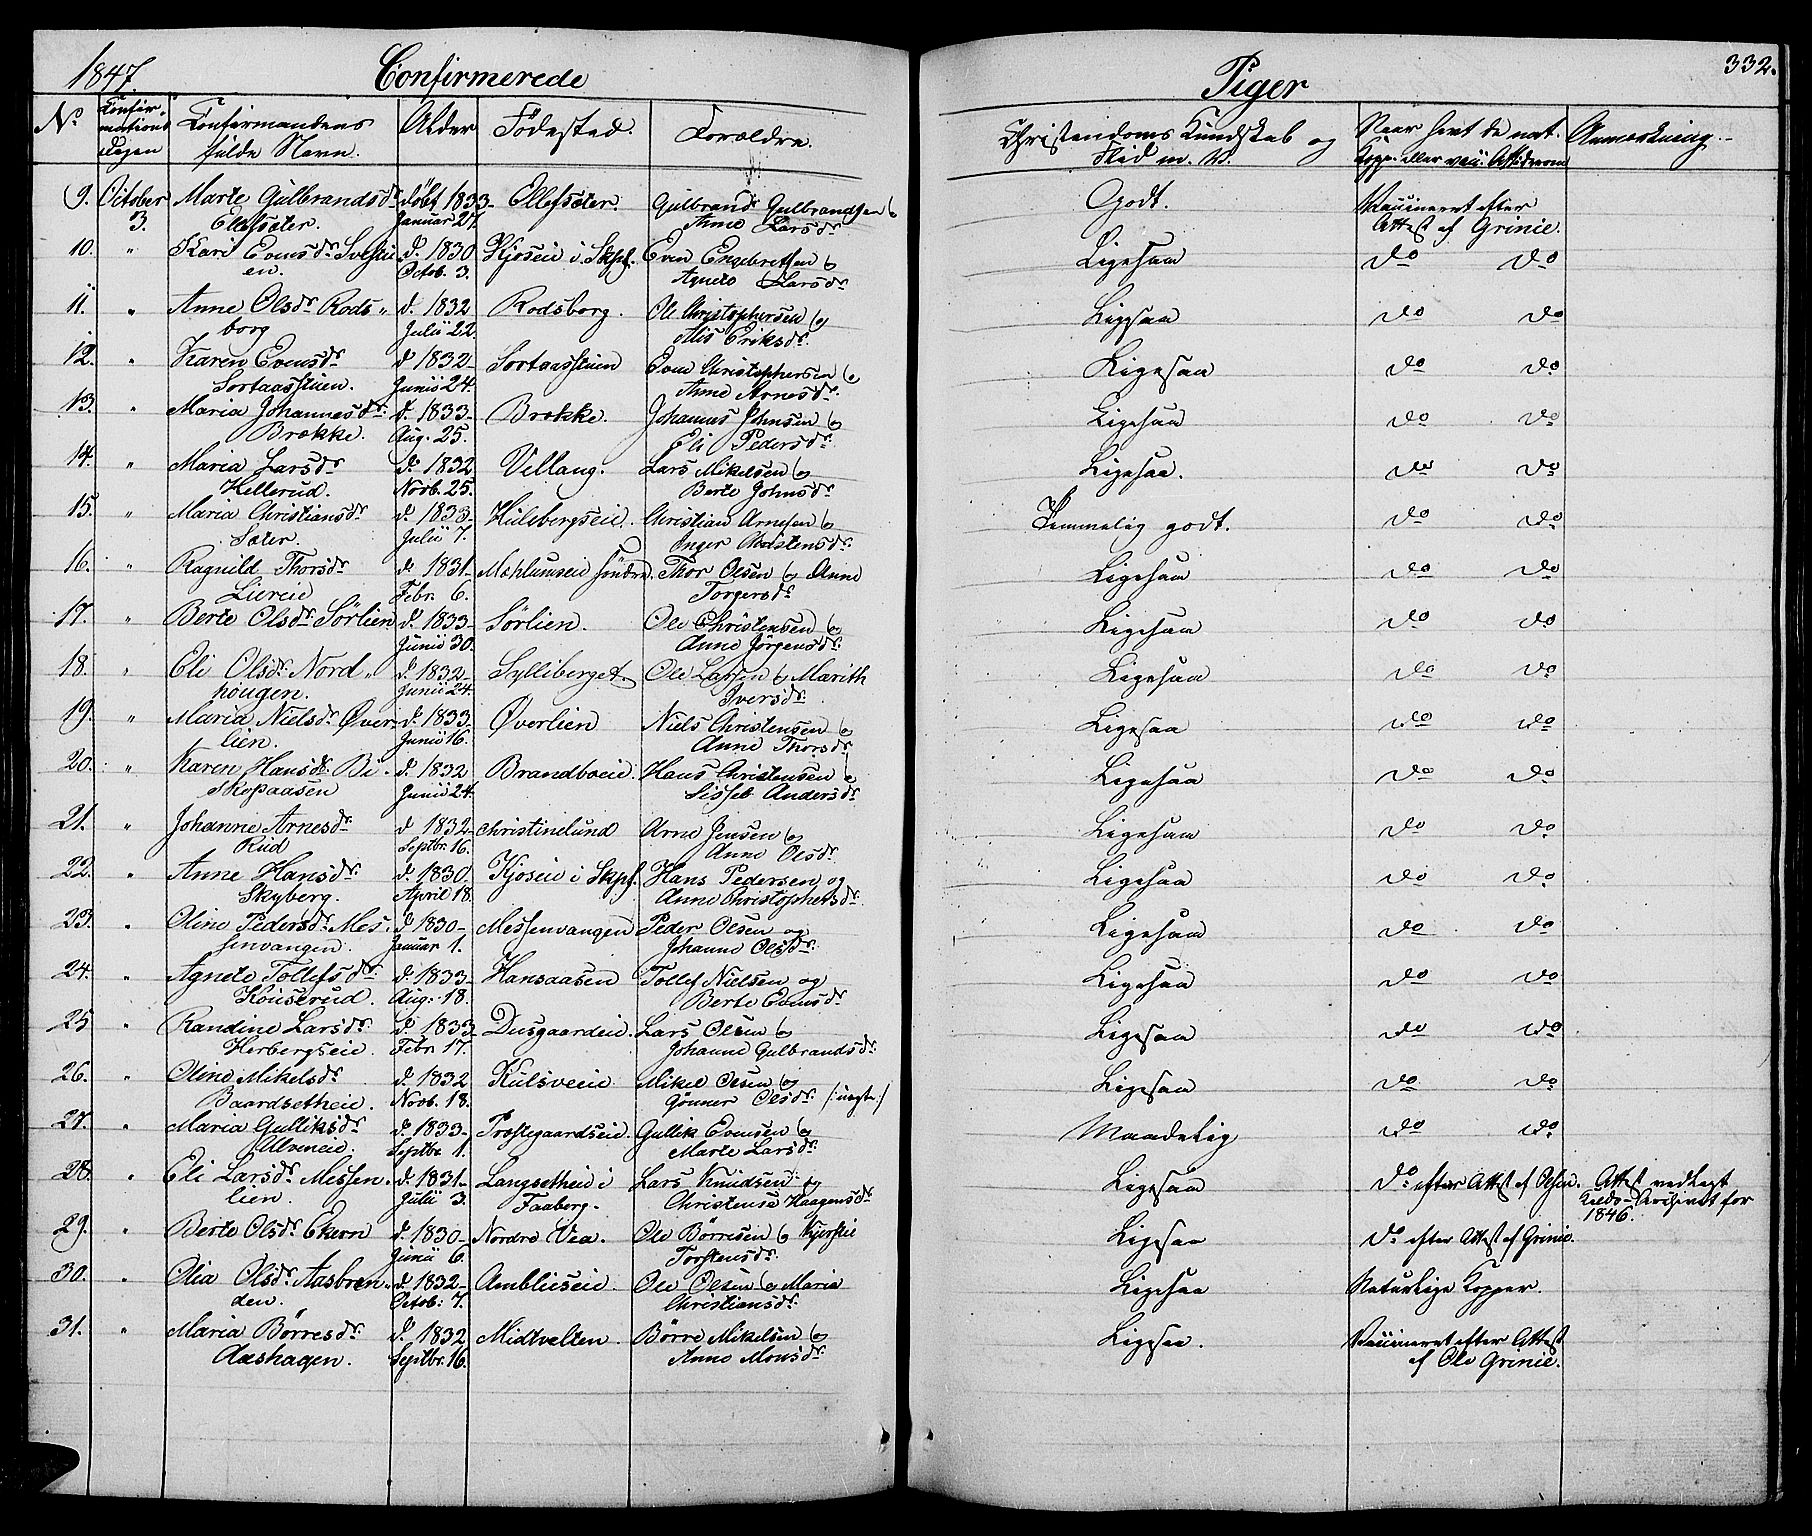 1847. Confirmerede Piger 332.
No. Confirmations Dagen Confirmandens fulde Navn. Alder Fødested. Forældre. Christendoms Kundskab og Flid m. V. Naar havt de nat. Kopp. eller vacc. Attesterne Anmærkning.
9. October 3. Marte Gulbrandsdr. Ellefsæter. døbt 1833 Januar 27. Ellefsæter. Gulbrand Gulbrandsen og Anne Larsdr. Godt. Vaccineret efter Attest af Grinie.
10. " Kari Evensdr. d. 1830 Octob. 3. Kjøseie i Skpf. Even Engebretsen og Agnete Larsdr. Ligesaa do do
11. " Anne Olsdr. Rodsborg d. 1832 Julii 22. Rodsborg. Ole Christophersen og Alis Eriksdr. Ligesaa do do
12. " Karen Evensdr. Sortaasstuen. d. 1832 Junii 24. Sortaasstuen Even Christophersen og Anne Arnesdr. Ligesaa do do
13. " Maria Johannesdr. Brække. d. 1833 Aug. 25. Brække. Johannes Johnsen og Eli Pedersdr. Ligesaa do do
14. " Maria Larsdr. Hellerud. d. 1832 Novb. 25. Vellang. Lars Mikelsen og Berte Johnsdr. Ligesaa. do do
15. " Maria Christiansdr. Sæter. d. 1833 Julii 7. Hulsbergseie. Christian Arnesen og Inger Christensdr. Temmelig godt. do do
16. " Ragnild Thorsdr. Liereie d. 1831 Febr. 6. Mæhlumseie søndre. Thor Olsen og Anne Torgersdr. Ligesaa do do
17. " Berte Olsdr. Sørlien d. 1833 Junii 30. Sørlien. Ole Christensen og Anne Jørgensdr. Ligesaa do do
18. " Eli Olsdr. Nordhougen. d. 1832 Junii 24. Sylliberget. Ole Larsen og Marith Iversdr. Ligesaa do do
19. " Maria Nielsdr. Øverlien. d. 1833. Junii 16. Øverlien Niels Christensen og Anne Thorsdr. Ligesaa do do
20. " Karen Hansdr. Biskopaasen d. 1832 Junii 24. Brandboeie. Hans Christensen og Sisseb Andersdr. Ligesaa do do
21. " Johanne Arnesdr. Rud d. 1832 Septbr. 16. Christinelund Arne Jensen og Anne Olsdr. Ligesaa do do
22. " Anne Hansdr. Skyberg. d. 1830. April 18. Kjøseie i Skpf. Hans Pedersen og Anne Christophersdr. Ligesaa do do
23. " Oline Pedersdr. Messenvangen. d. 1830 Januar 1. Messenvangen Peder Olsen og Johanne Olsdr. Ligesaa do do
24. " Agnete Tollefsdr. Kouserud. d. 1833 Aug. 18. Hansaasen Tollef Nielsen og Berte Evensdr. Ligesaa do do
25 " Randine Larsdr. Herbergseie. d. 1833 Febr. 17. Dusgaardeie. Lars Olsen og Johanne Gulbrandsdr. Ligesaa do do
26. " Oline Mikelsdr. Baardsetheie. d. 1832 Novb. 18. Kulsveeie Mikel Olsen og Gønner Olsdr. /:uægte:/ Ligesaa do do
27. " Maria Gulliksdr. Ulveneie. d. 1833 Septbr. 1. Præstegaardseie. Gullik Evensen og Marte Larsdr. Maadelig do do
28. " Eli Larsdr. Messenlien. d. 1831 Julii 3. Langsetheie i Faaberg. Lars Knudsen og Christense Haagensdr. Ligesaa do efter Attest af Olsen. Attest vedlagt for 1846.
29. " Berte Olsdr. Ekern d. 1830 Junii 6. Nordre Vea. Ole Børresen og Kjerstie Torstensdr. Ligesaa do efter Attest af Grinie.
30. " Olia Olsdr. Aasbrenden. d. 1832 Octob. 7. Amblieseie. Ole Olsen og Maria Christiansdr. Ligesaa Naturlige Kopper.
31. " Maria Børresdr. Aashagen. d. 1832 Septbr. 16. Midtvelten. Børre Mikelsen og Anne Monsdr. Ligesaa. Vaccineret efter Attest af Ole Grinie.